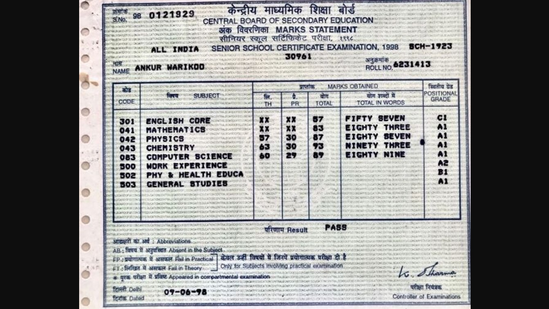 क्रमांक केन्द्रीय माध्यमिक शिक्षा बोर्ड
Sl.No. 98 0121929 CENTRAL BOARD OF SECONDARY EDUCATION
अंक विवरणिका MARKS STATEMENT
सीनियर स्कूल सर्टिफिकेट परीक्षा, १९९८
ALL INDIA SENIOR SCHOOL CERTIFICATE EXAMINATION, 1998 BCH-1923
30961
नाम अनुक्रमांक
NAME ANKUR WARIKOO ROLL NO. 6231413
प्राप्तांक MARKS OBTAINED
कोड CODE विषय SUBJECT लि. TH प्रै. PR योग TOTAL योग शब्दों में TOTAL IN WORDS POSITIONAL GRADE
301 ENGLISH CORE XX XX 57 FIFTY SEVEN C1
041 MATHEMATICS XX XX 83 EIGHTY THREE A1
042 PHYSICS 57 30 87 EIGHTY SEVEN A1
043 CHEMISTRY 63 30 93 NINETY THREE A1
083 COMPUTER SCIENCE 60 29 89 EIGHTY NINE A1
500 WORK EXPERIENCE A2
502 PHY & HEALTH EDUCA B1
503 GENERAL STUDIES A1
परिणाम Result PASS
Abbreviations
AB : विषय में अनुपस्थित Absent in the Subject
FP : प्रयोगात्मक में असफल Fail in Practical केवल उन्हीं विषयों में जिनमें प्रयोगात्मक परीक्षा हो है
FT : लिखित में असफल Fail in Theory Only for Subjects involving practical examination
Appearing in compartmental examination
दिल्ली Delhi
दिनांक Dated 09-06-98
परीक्षा नियंत्रक
Controller of Examinations